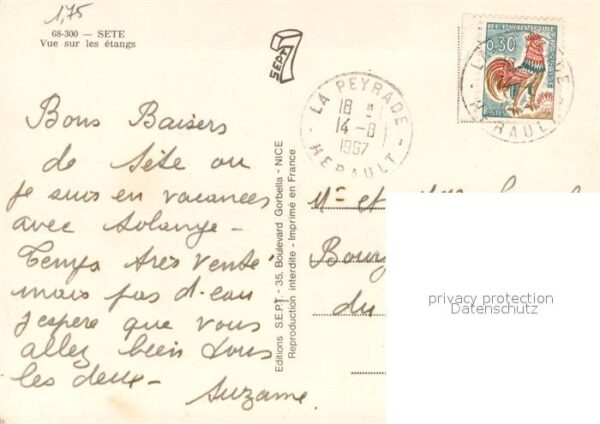 1,75
68-300 — SETE
Vue sur les étangs
SEPT
LA PEYRADE
18 H
14-8
1967
HERAULT
0,30
Bons Baisers
de Sète ou
je suis en vacances
avec Solange -
Temps très venté
mais pas d'eau
j'espère que vous
allez bien tous
les deux -
Suzanne.
Editions S.E.P.T. - 35, Boulevard Gorbella - NICE
Reproduction interdite - Imprimé en France
Mr et Mme
du
privacy protection
Datenschutz